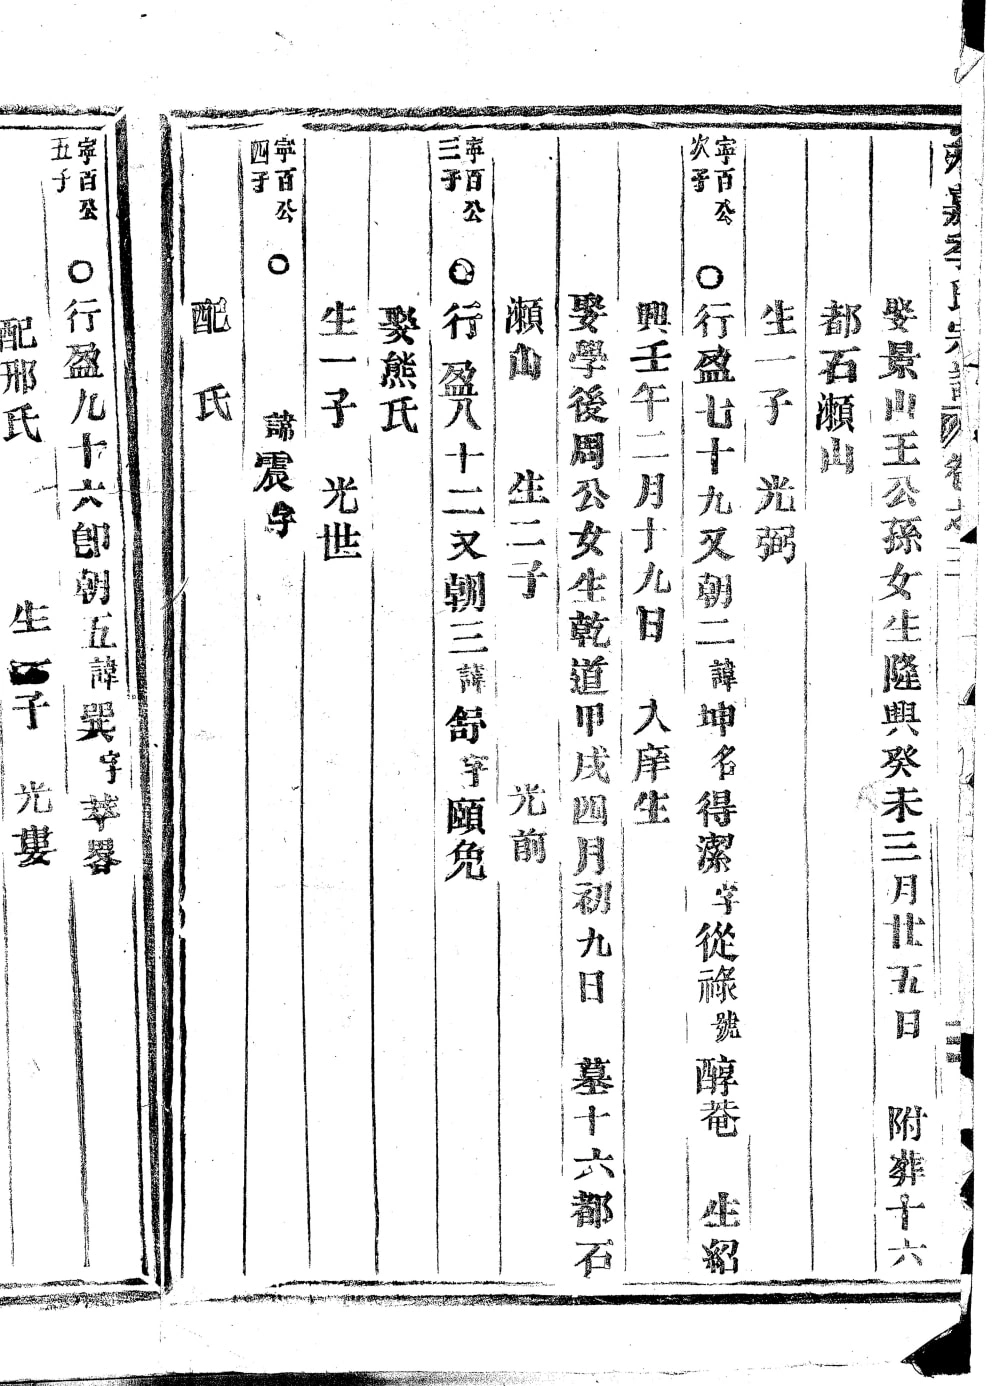 嘉李氏宗譜 卷之三
娶景山王公孫女生隆興癸未三月廿五日 附葬十六
都石瀨山
生一子 光弼
寧百公次子 〇行盈七十九又朝二諱坤名得潔字從祿號醇菴 生紹
興壬午二月十九日 入庠生
娶學後周公女生乾道甲戌四月初九日 墓十六都石
瀨山 生二子 光前
寧百公三子 〇行盈八十二又朝三諱舒字頤免
娶熊氏
生一子 光世
寧百公四子 〇 諱震字
配 氏
寧百公五子 〇行盈九十六郎朝五諱巽字萃畧
配邢氏 生 子 光婁